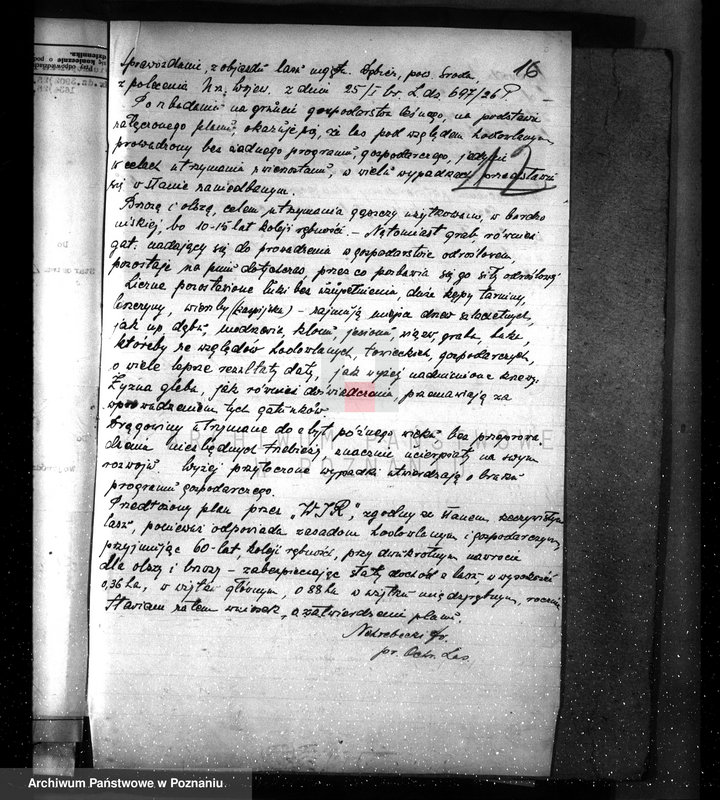 16
Sprawozdanie, z objazdu lasu mają. Dębicz, pow. Środa,
z polecenia Urz. Wojew. z dnia 25/I br. L. dz. 697/26 r.
Po zbadaniu na gruncie gospodarstwa leśnego, na podstawie
załączonego planu, okazuje się, że las pod względem hodowlanym
prowadzony bez żadnego programu gospodarczego, jedynie
w celach utrzymania zwierzostanu, w wielu wypadkach przedstawia
się w stanie zaniedbanym.
Brzozę i olszę, celem utrzymania gąszczy użytkowano, w bardzo
niskiej, bo 10-15 lat kolei rębności. – Natomiast grab, również
gat. nadający się do prowadzenia w gospodarstwie odroślowem,
pozostaje na pniu dotychczas, przez co pozbawia się go siły odroślowej
Liczne pozostawione luki bez uzupełnienia, duże kępy tarniny,
leszczyny, wierzby (kaspijska) – zajmują miejsca drzew szlachetnych,
jak np. dębu, modrzewia, klonu, jesionu, wiązu, graba, buka,
któreby ze względów hodowlanych, łowieckich, gospodarczych,
o wiele lepsze rezultaty dały, jak wyżej nadmienione krzewy.
Żyzna gleba, jak również doświadczenia, przemawiają za
wprowadzeniem tych gatunków.
Drągowiny utrzymane do zbyt późnego wieku bez przeprowa-
dzenia niezbędnych trzebieży znacznie ucierpiały na swym
rozwoju. Wyżej przytoczone wypadki utwierdzają o braku
programu gospodarczego.
Przedłożony plan przez "WIR", zgodny ze stanem rzeczywistym
lasu, ponieważ odpowiada zasadom hodowlanym i gospodarczym,
przyjmując 60-lat, kolej rębności, przy dwukrotnym nawrocie
dla olszy i brzozy – zabezpieczając stały dochód z lasu, w wysokości
0,36 ha, w użytku głównym, 0 88 ha w użytku międzyrębnym, rocznie
Stawiam zatem wniosek, o zatwierdzenie planu.
Ochr. Las.
ARCHIWUM PAŃSTWOWE
W POZNANIU
Archiwum Państwowe w Poznaniu